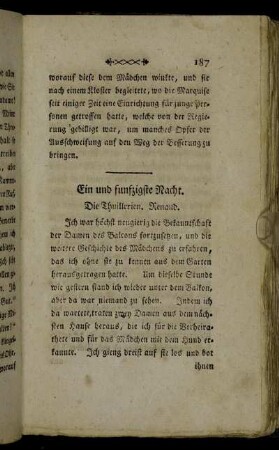 187
worauf diese dem Mädchen winkte, und sie
nach einem Kloster begleitete, wo die Marquise
seit einiger Zeit eine Einrichtung für junge Per-
sonen getroffen hatte, welche von der Regie-
rung gebilligt war, um manches Opfer der
Ausschweifung auf den Weg der Besserung zu
bringen.
Ein und funfzigste Nacht.
Die Thuillerien. Renaud.
Ich war höchst neugierig die Bekanntschaft
der Damen des Balcons fortzusetzen, und die
wahre Geschichte des Mädchens zu erfahren,
das ich ohne sie zu kennen aus dem Garten
herausgetragen hatte. Um dieselbe Stunde
wie gestern stand ich wieder unter dem Balkon,
aber da war niemand zu sehen. Indem ich
da wartete, traten zwey Damen aus dem näch-
sten Hause heraus, die ich für die Verheira-
thete und für das Mädchen mit dem Hund er-
kannte. Ich gieng dreist auf sie los und bot
ihnen